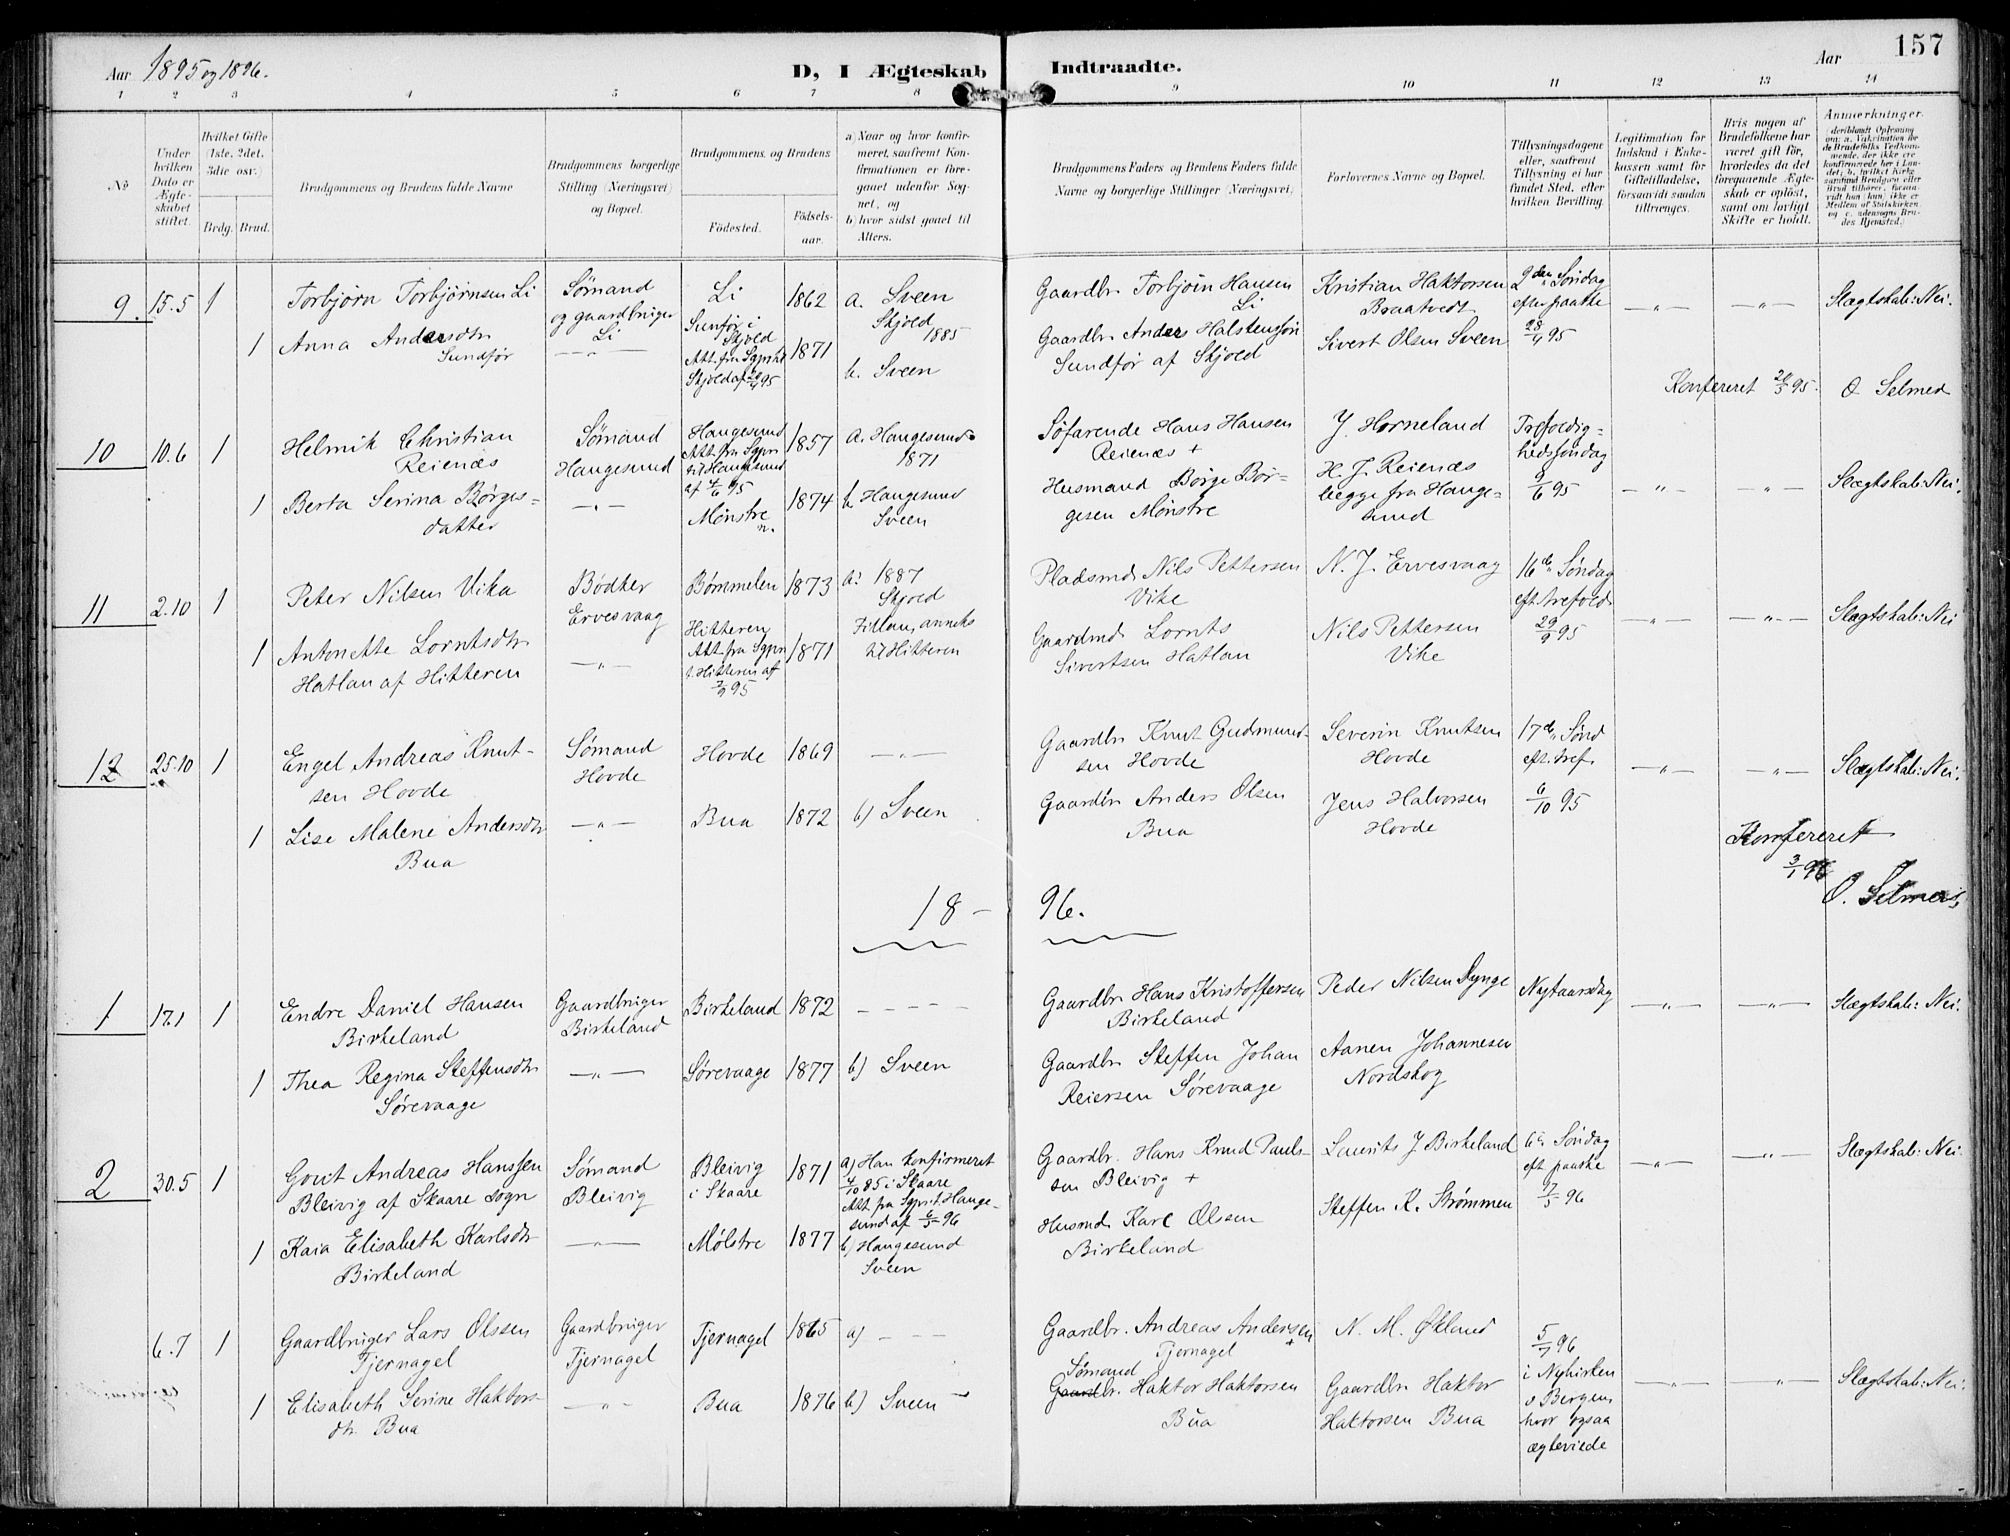 Aar 1895 og 1896.
D, I Ægteskab Indtraadte.
Aar
157
1 2 3 4 5 6 7 8 9 10 11 12 13 14
No
Under hvilken Dato er Ægteskabet stiftet.
Hvilket Gifte (1ste, 2det, 3die osv.)
Brdg. Brud.
Brudgommens og Brudens fulde Navne
Brudgommens borgerlige Stilling (Næringsvei) og Bopæl.
Brudgommens og Brudens
Födested.
Födselsaar.
a) Naar og hvor konfirmeret, saafremt Konfirmationen er foregaaet udenfor Sognet, og
b) hvor sidst gaaet til Alters.
Brudgommens Faders og Brudens Faders fulde Navne og borgerlige Stillinger (Næringsvei).
Forlovernes Navne og Bopæl.
Tillysningsdagene eller, saafremt Tillysning ei har fundet Sted, efter hvilken Bevilling.
Legitimation for Indskud i Enkekassen samt for Giftetilladelse, forsaavidt saadan tiltrænges.
Hvis nogen af Brudefolkene har været gift før, hvorledes da det foregaaende Ægteskab er oplöst, samt om lovligt Skifte er holdt.
Anmerkninger
9. 15.5 1 Torbjørn Torbjørnsen Li
Sømand og gaardbruger Li
Li 1862
a. Sveen Skjold 1885
Gaardbr Torbjörn Hansen Li
Kristian Haktorsen Braatvedt
2den Søndag efter paaske 28/4 95
-"- -"- Slægtskab: Nei.
1 Anna Andersdtr Sundför
-"-
Sundför i Skjold Att. fra Sgprst Skjold af 95
1871
b. Sveen
Gaardbr. Anders Halstensson Sundför af Skjold
Sivert Olsen Sveen
Konfereret 20/5 95. O Selmer
10 10.6 1 Helmik Christian Reienæs
Sømand Haugesund
Haugesund Att. fra Sgpr til Haugesund af 4/6 95
1857
a. Haugesund 1871
Söfarende Hans Hansen Reienæs +
J. Horneland
H. J. Reienæs begge fra Haugesund
Trefoldighedssøndag 9/6 95
-"- -"- Slægtskab: Nei.
1 Berta Serina Børgesdatter
-"-
Mønstre n. 1874
b Haugesund Sveen
Husmand Börge Börgesen Mönstre
11 2.10 1 Peter Nilsen Vika
Bødker Ervesvaag
Bømmelen 1873
a: 1887 Skjold
Pladsmd Nils Pettersen Vike
N. J. Ervesvaag
16de Søndag eft. trefold. 29/9 95
-"- -"- Slægtskab: Nei
1 Antonette Lorntsdtr Hatlan af Hitteren
-"-
Hitteren Att. fra Sgpr t. Hitteren af 7/9 95
1871
Fillan, anneks til Hitteren
Gaardmd Lornts Sivertsen Hatlan
Nils Pettersen Vike
12 25.10 1 Engel Andreas Knutsen Hovde
Sømand Hovde
Hovde 1869 -"-
Gaardbr Knut Gudmundsen Hovde
Severin Knutsen Hovde
17de Sønd eft. tref. 6/10 95
-"- -"- Slægtskab: Nei.
1 Lise Malene Andersdtr Bua
-"- Bua 1872 b) Sveen
Gaardbr Anders Olsen Bua
Jens Halvorsen Hovde
Konfereret 3/1 96 O. Selmer
18-96.
1 17.1 1 Endre Daniel Hansen Birkeland
Gaardbruger Birkeland
Birkeland 1872 - - - -
Gaardbr Hans Kristoffersen Birkeland
Peder Nilsen Dynge
Nytaarsdag
-"- -"- Slægtskab: Nei.
1 Thea Regina Steffensdtr Sørevaage
-"- Sørevaage 1877 b) Sveen
Gaardbr Steffen Johan Reiersen Sørevaage
Aanen Johannesen Nordskog
2 30.5 1 Govit Andreas Hanssen Bleivig af Skaare sogn
Sømand Bleivig
Bleivig i Skaare 1871
a) Han konfirmeret 4/10 85 i Skaare Att. fra Sgpr. t. Haugesund af 6/5 96
Gaardbr. Hans Knud Paulsen Bleivig +
Laurits J Birkeland
6te Søndag eft. paaske 17/5 96
-"- -"- Slægtskab: Nei.
1 Kaia Elisabeth Karlsdtr Birkeland
-"- Mølstre 1877
b) Haugesund Sveen
Husmd Karl Olssen Birkeland
Steffen K. Strømmen
6.7 1 Gaardbruger Lars Olssen Tjernagel
Gaardbruger Tjernagel
Tjernagel 1865 a) - - -
Gaardbr. Andreas Andersen + Tjernagel
N. M. Økland
5/7 96 i Nykirken i Bergen hvor ogsaa ægteviede
-"- -"- Slægtskab: Nei.
1 Elisabeth Serine Haktorsdtr Bua
-"- Bua 1876 b) Sveen -
Sømand Gaardbr. Haktor Haktorsen Bua
Gaardbr Haktor Haktorsen Bua